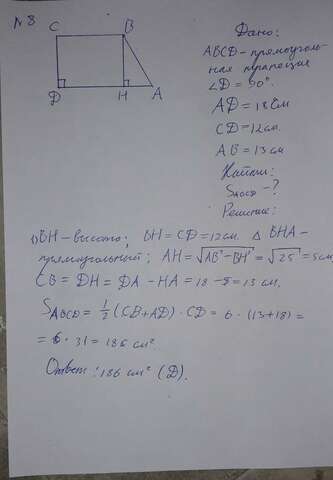 №8
C B
D H A
Дано:
ABCD - прямоуголь-
ная трапеция
∠D = 90°.
AD = 18 см
CD = 12 см.
AB = 13 см
Найти:
SABCD - ?
Решение:
1) BH - высота; BH = CD = 12 см. Δ BHA -
прямоугольный; AH = √AB² - BH² = √25 = 5 см,
CB = DH = DA - HA = 18 - 5 = 13 см.
SABCD = 1/2 (CB + AD) · CD = 6 · (13 + 18) =
= 6 · 31 = 186 см².
Ответ: 186 см² (D).